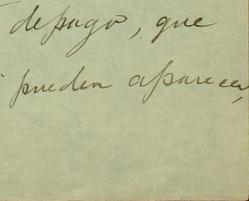 depago, que
pueden aparecer,